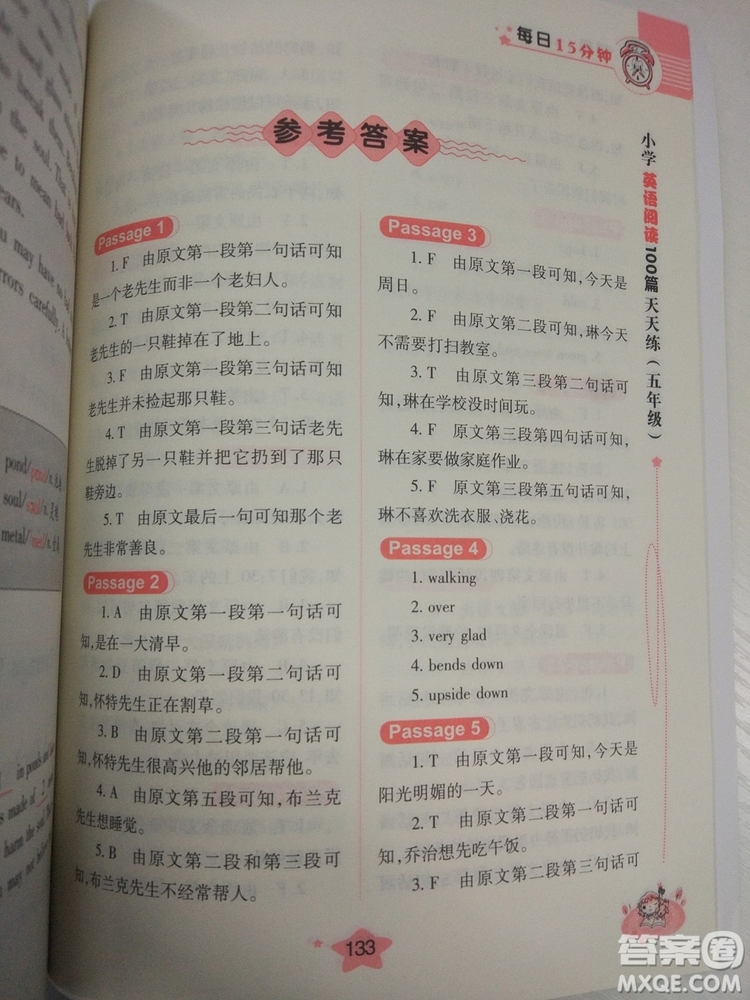 每日15分钟
参考答案
Passage 1
1. F 由原文第一段第一句话可知
是一个老先生而非一个老妇人。
2. T 由原文第一段第二句话可知
老先生的一只鞋掉在了地上。
3. F 由原文第一段第三句话可知
老先生并未捡起那只鞋。
4. T 由原文第一段第三句话老先
生脱掉了另一只鞋并把它扔到了那只
鞋旁边。
5. T 由原文最后一句可知那位老
先生非常善良。
Passage 2
1. A 由原文第一段第一句话可
知,是在一大清早。
2. D 由原文第一段第二句话可
知,怀特先生正在割草。
3. B 由原文第二段第一句话可
知,怀特先生很高兴他的邻居帮他。
4. A 由原文第五段可知,布兰克
先生想睡觉。
5. B 由原文第二段和第三段可
知,布兰克先生不经常帮人。
Passage 3
1. F 由原文第一段可知,今天是
周日。
2. F 由原文第二段可知,琳今天
不需要打扫教室。
3. T 由原文第三段第二句话可
知,琳在学校没时间玩。
4. F 原文第三段第四句话可知,
琳在家要做家庭作业。
5. F 原文第三段第五句话可知,
琳不喜欢洗衣服、浇花。
Passage 4
1. walking
2. over
3. very glad
4. bends down
5. upside down
Passage 5
1. T 由原文第一段可知,今天是
阳光明媚的一天。
2. T 由原文第二段第一句话可
知,乔治想先吃午饭。
3. F 由原文第二段第三句话可
小学英语阅读100篇天天练(五年级)
133
pond
soul
metal
答案圈
MXQE.COM